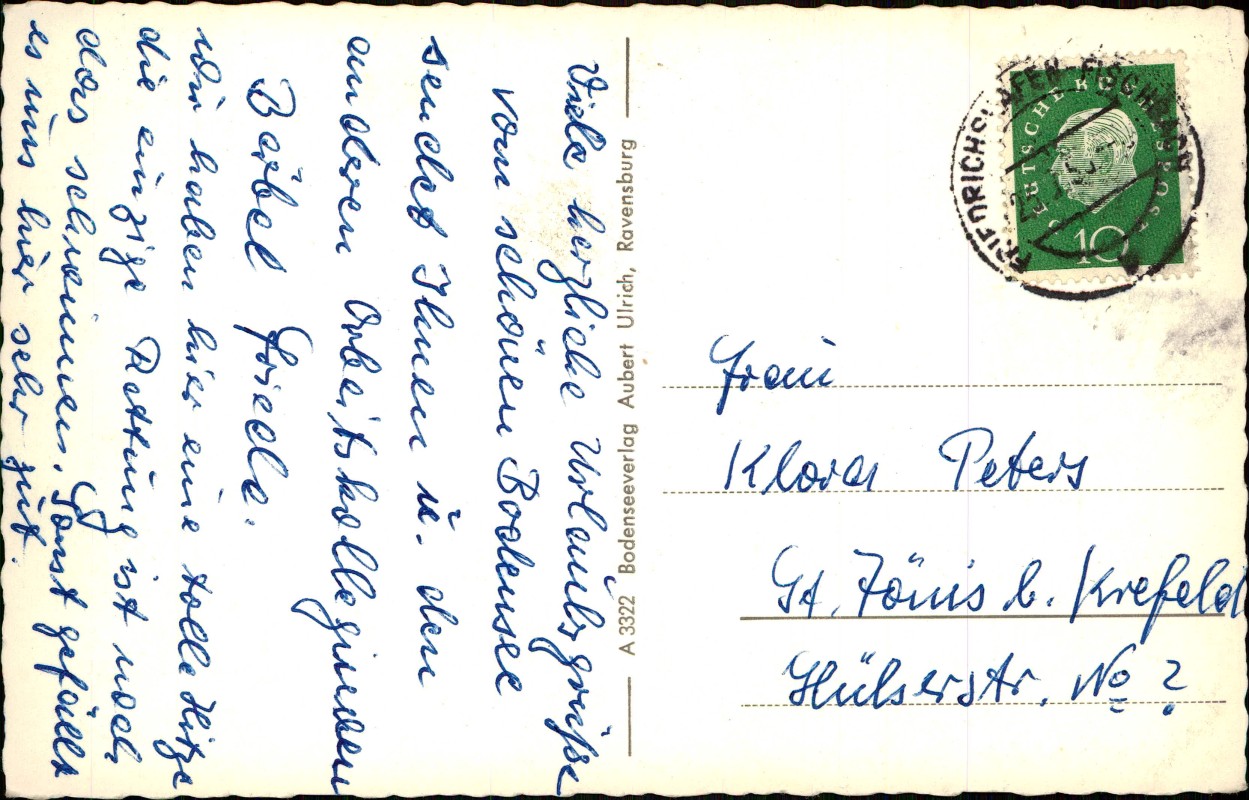 Viele herzliche Urlaubsgrüße
vom schönen Bodensee
sendet Ihnen u. den
anderen Arbeitskolleginnen
Bärbel
Wir haben hier eine tolle Hitze
die einzige Rettung ist noch
das schwimmen. Sonst gefällt
es uns hier sehr gut.
A 3322 Bodenseeverlag Aubert Ulrich, Ravensburg
FRIEDRICHSHAFEN-FISCHBACH
DEUTSCHE BUNDESPOST
10
Frau
Klara Peters
St. Tönis b. Krefeld
Hülserstr. No ?